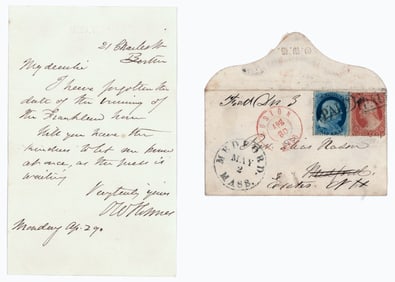 21 Charles St
Boston
My dear Sir
I have forgotten the
date of the evening of
the Franklin
Will you have the
kindness to let me know
at once, as the press is
waiting
Very truly yours
O W Holmes
Monday Ap. 29.
O.W.H.
PAID
BOSTON
APR
30
MEDFORD
MAY
2
MASS.
Medford
N H